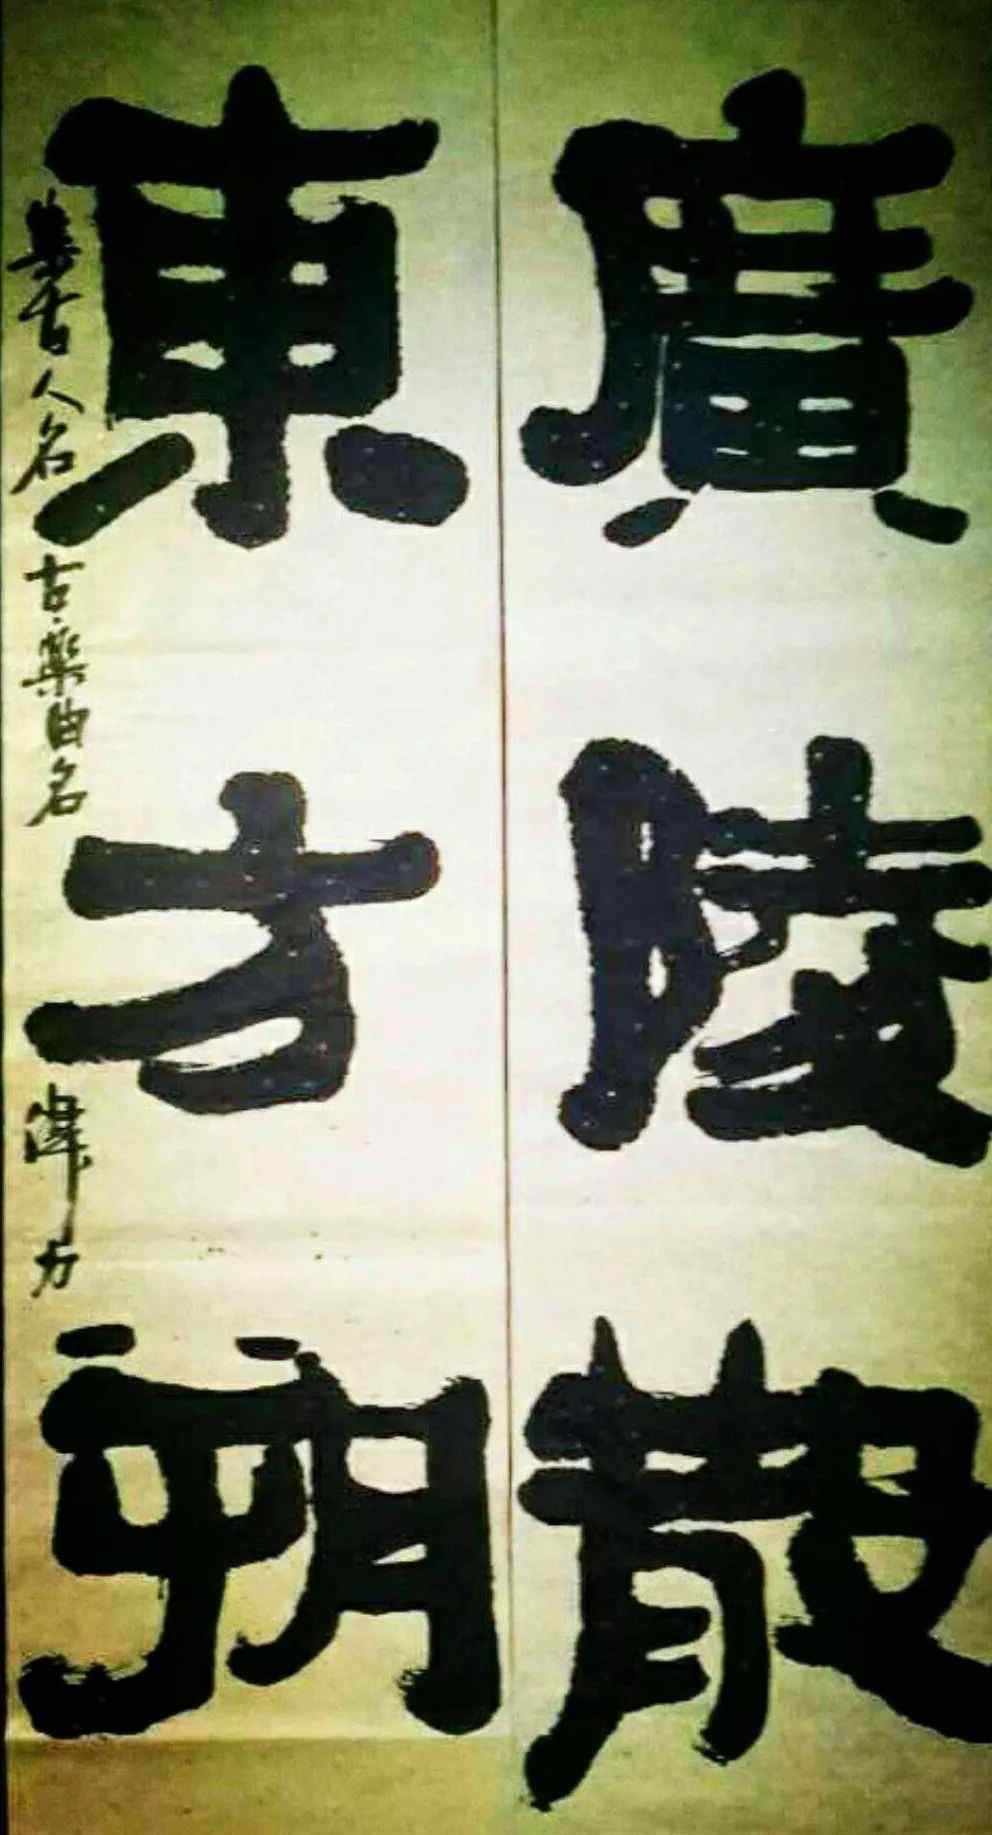 廣陵散
東方朔
集古人名古樂曲名
偉方